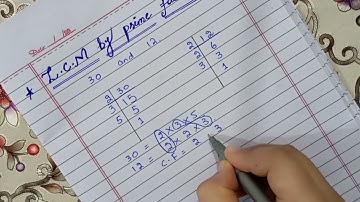 * L.C.M by prime
30 and 12
2 | 30
3 | 15
5 | 5
1
2 | 12
2 | 6
3 | 3
1
30 = 2 × 3 × 5
12 = 2 × 2 × 3
C.F = 2 3